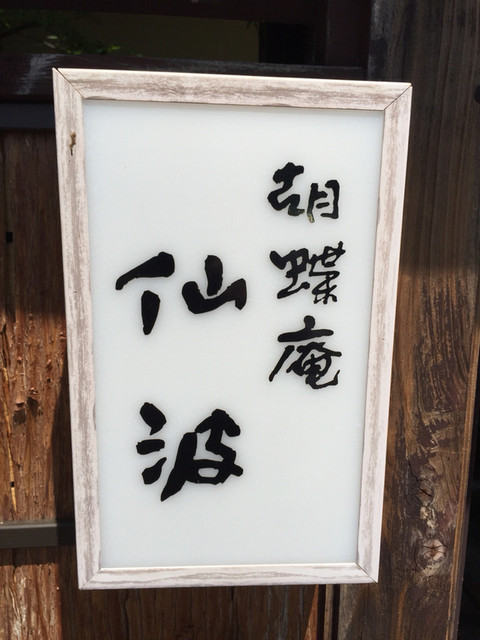 胡蝶庵
仙波